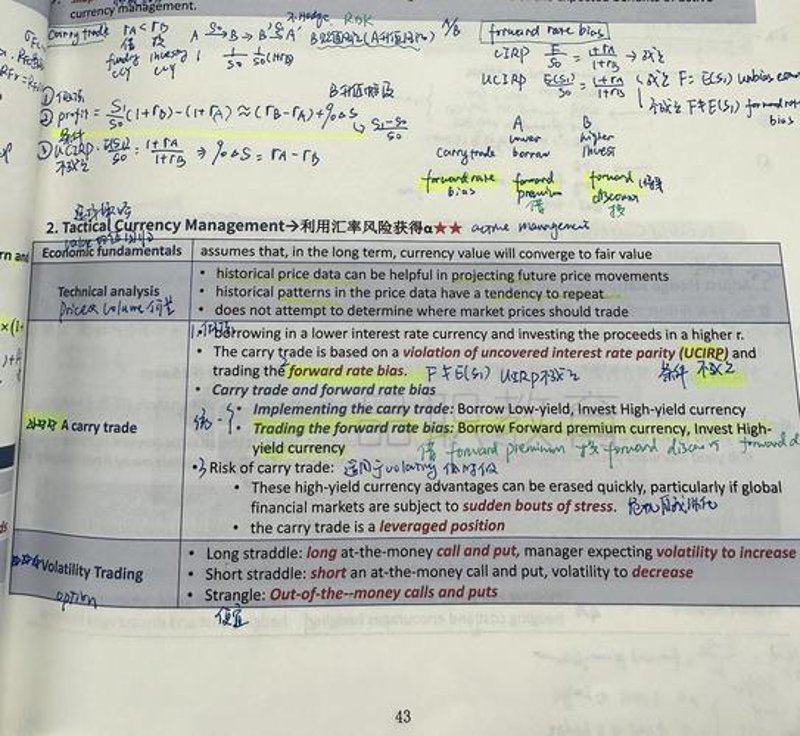 currency management.
Carry trade rA < rB
借 投
funding investing
ccy ccy
不Hedge Risk
A/B
forward rate bias
CIRP F/S0 = 1+rA/1+rB → 成立
UCIRP E(S1)/S0 = 1+rA/1+rB
成立 F = E(S1)
不成立 F≠E(S1) forward rate bias
② profit = S1/S0 (1+rB) - (1+rA) ≈ (rB-rA) + %ΔS
S1-S0/S0
条件
③ UCIRP: E(S1)/S0 = 1+rA/1+rB ⇒ %ΔS = rA - rB
不成立
A B
lower higher
carry trade borrow invest
forward rate bias forward premium forward discount
借 投
2. Tactical Currency Management→利用汇率风险获得α★★ active management
Economic fundamentals assumes that, in the long term, currency value will converge to fair value
Technical analysis
price & volume
• historical price data can be helpful in projecting future price movements
• historical patterns in the price data have a tendency to repeat
• does not attempt to determine where market prices should trade
A carry trade
• borrowing in a lower interest rate currency and investing the proceeds in a higher r.
• The carry trade is based on a violation of uncovered interest rate parity (UCIRP) and
trading the forward rate bias. F≠E(S1) UIRP不成立 条件 不成立
• Carry trade and forward rate bias
• Implementing the carry trade: Borrow Low-yield, Invest High-yield currency
• Trading the forward rate bias: Borrow Forward premium currency, Invest High-
yield currency 借 forward premium 投 forward discount
• Risk of carry trade: 适用于volatility 低时候
• These high-yield currency advantages can be erased quickly, particularly if global
financial markets are subject to sudden bouts of stress.
• the carry trade is a leveraged position
Volatility Trading
option
• Long straddle: long at-the-money call and put, manager expecting volatility to increase
• Short straddle: short an at-the-money call and put, volatility to decrease
• Strangle: Out-of-the--money calls and puts
便宜
43